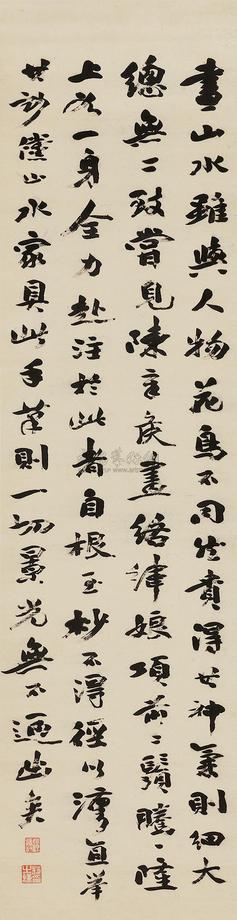 畫山水雖與人物花鳥不同然貴得其神氣則細大
總無二致嘗見陳章侯畫繙繂娘項前二鬚騰騰陸
上如一身全力赴注於此者自根至杪不得徑以瀋直举
其訣儻山水家具此手筆則一切景光無不逼出矣